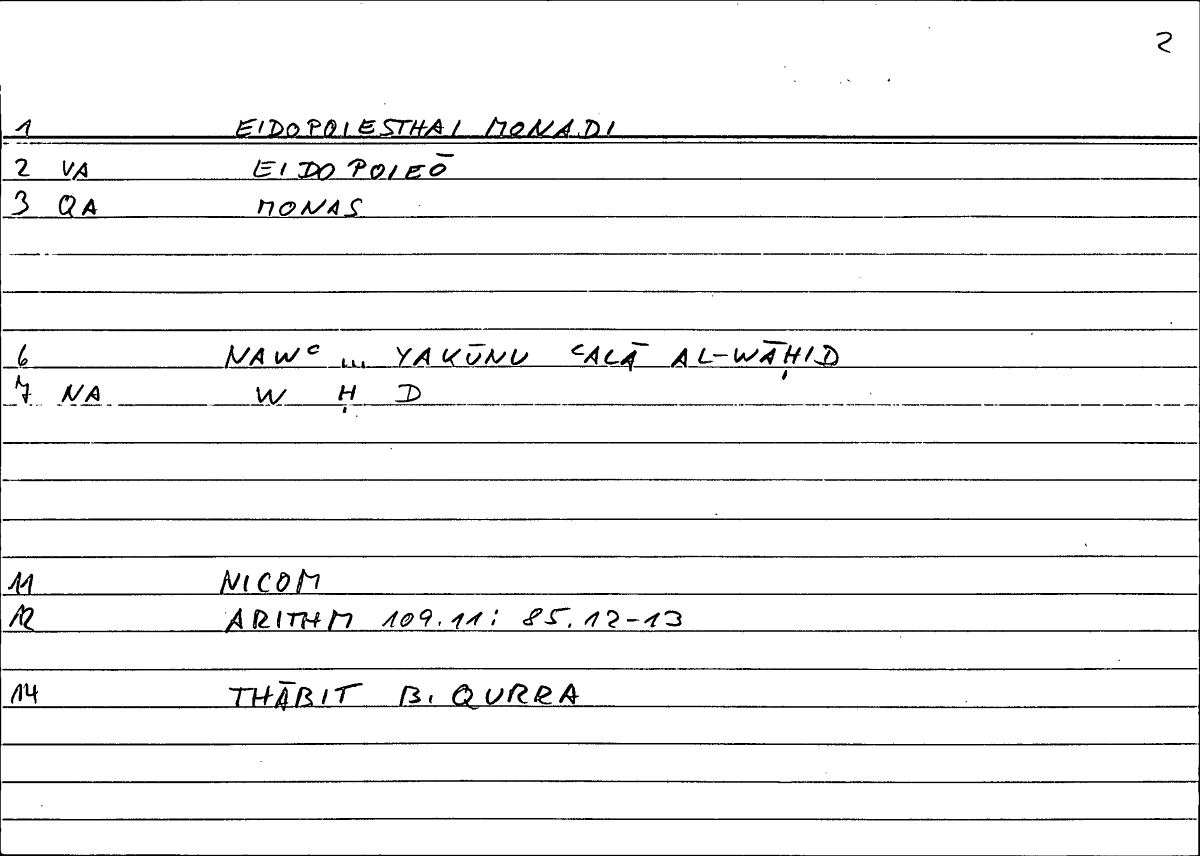 2
1 EIDOPOIESTHAI MONADI
2 VA EIDOPOIEŌ
3 QA MONAS
6 NAWᶜ ... YAKŪNU ᶜALĀ AL-WĀḤID
7 NA W Ḥ D
11 NICOM
12 ARITHM 109.11: 85.12-13
14 THĀBIT B. QURRA